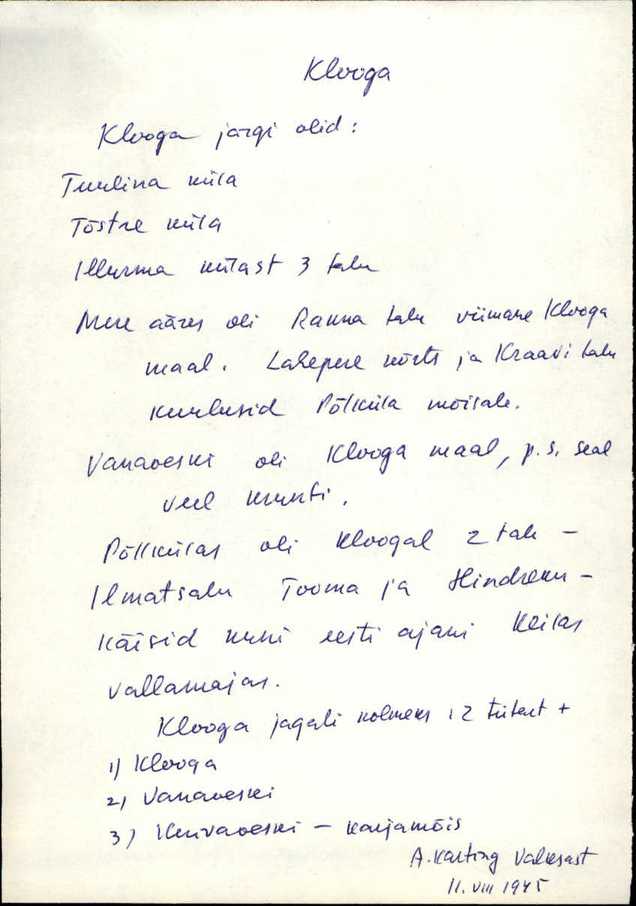 Klooga
Klooga järgi olid:
Tuulina küla
Tõstre küla
Illurma külast 3 talu
Mere ääres oli Ranna talu viimane Klooga
maal. Lahepere kõrts ja Kraavi talu
kuulusid Põllküla mõisale.
Vanaveski oli Klooga maal, p.s. seal
veel
Põllkülas oli Kloogal 2 talu –
Ilmatsalu Tooma ja Hindreku –
käisid kuni eesti ajani Keilas
vallamajas.
Klooga jagati kolmeks
1) Klooga
2) Vanaveski
3) Kuivaveski – karjamõis
A. Karting
11. VIII 1945